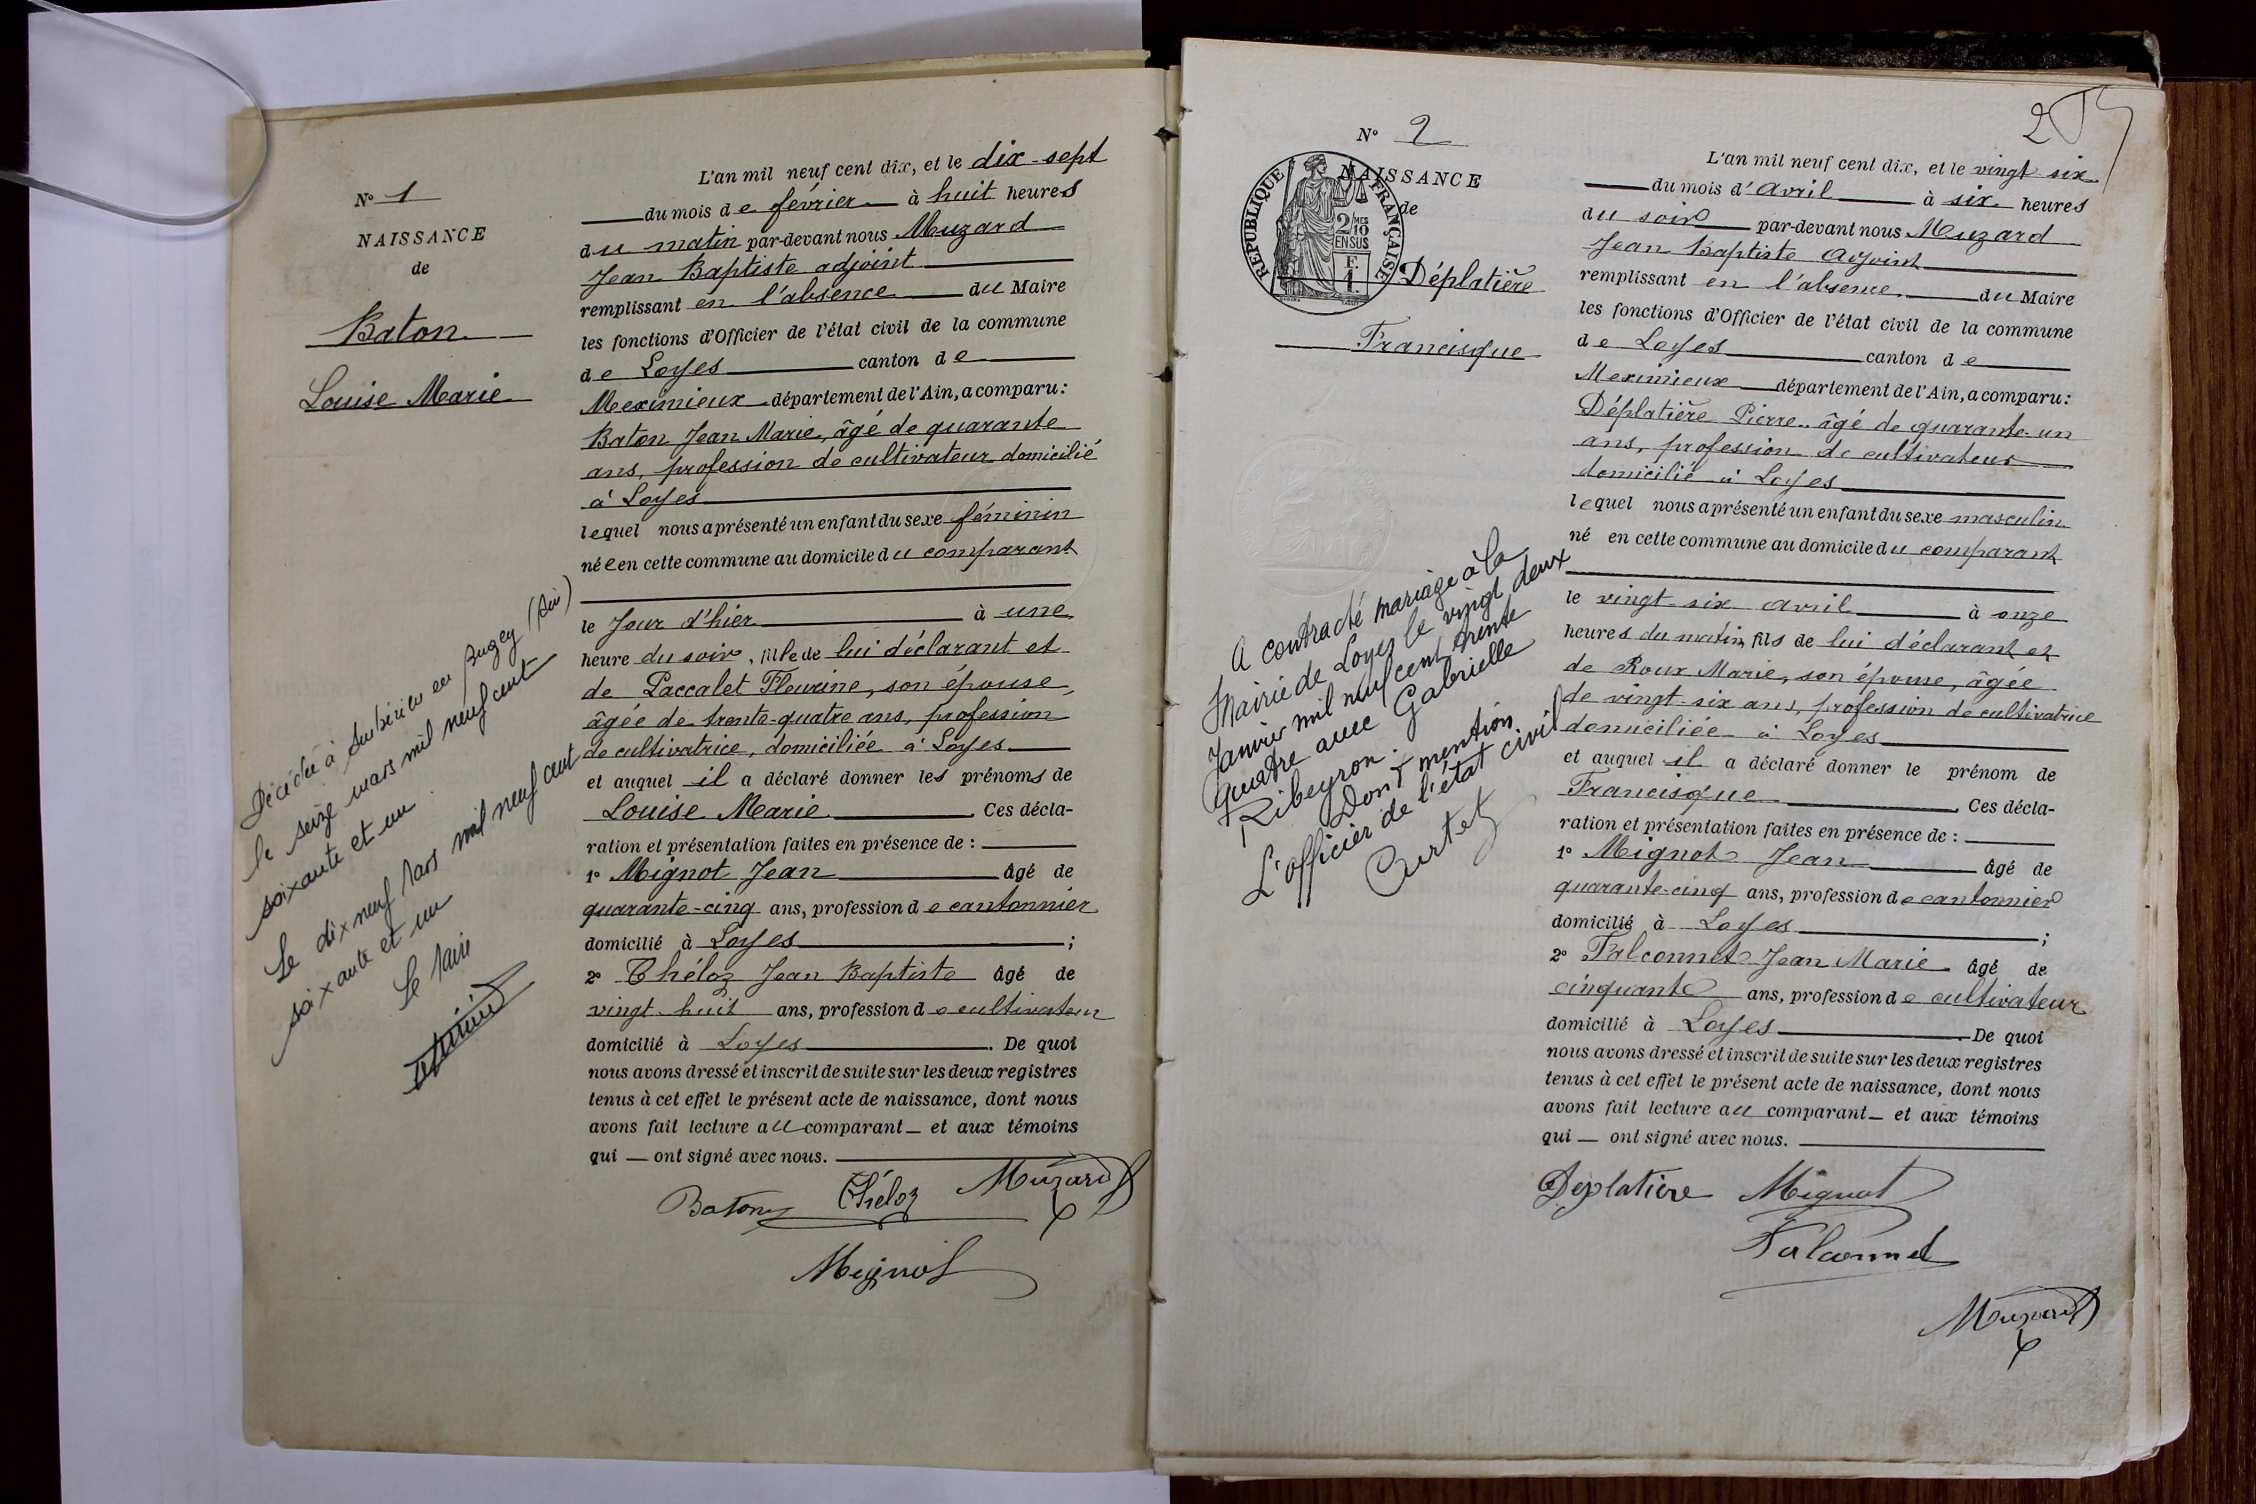 N° 1
NAISSANCE
de
Baton
Louise Marie
L'an mil neuf cent dix, et le dix-sept
du mois de février à huit heures
du matin par-devant nous Muzard
Jean Baptiste adjoint
remplissant en l'absence du Maire
les fonctions d'Officier de l'état civil de la commune
de Loyes canton de
Meximieux département de l'Ain, a comparu:
Baton Jean Marie, âgé de quarante
ans, profession de cultivateur domicilié
à Loyes
lequel nous a présenté un enfant du sexe féminin
née en cette commune au domicile du comparant
le jour d'hier à une
heure du soir, fille de lui déclarant et
de Paccalet Fleurine, son épouse,
âgée de trente-quatre ans, profession
de cultivatrice, domiciliée à Loyes
et auquel il a déclaré donner les prénoms de
Louise Marie. Ces décla-
ration et présentation faites en présence de :
1° Mignot Jean âgé de
quarante-cinq ans, profession de cantonnier
domicilié à Loyes ;
2° Théloz Jean Baptiste âgé de
vingt-huit ans, profession de cultivateur
domicilié à Loyes. De quoi
nous avons dressé et inscrit de suite sur les deux registres
tenus à cet effet le présent acte de naissance, dont nous
avons fait lecture au comparant et aux témoins
qui — ont signé avec nous.
Baton Théloz Muzard
Mignot
Décédée à Ambérieu en Bugey (Ain)
le seize mars mil neuf cent
soixante et un
Le dix neuf mars mil neuf cent
soixante et un
Le Maire
257
N° 2
NAISSANCE
de
RÉPUBLIQUE FRANÇAISE
2/10
EN SUS
F.
1.
Déplatière
Francisque
L'an mil neuf cent dix, et le vingt six
du mois d'Avril à six heures
du soir par-devant nous Muzard
Jean Baptiste Adjoint
remplissant en l'absence du Maire
les fonctions d'Officier de l'état civil de la commune
de Loyes canton de
Meximieux département de l'Ain, a comparu:
Déplatière Pierre âgé de quarante-un
ans, profession de cultivateur
domicilié à Loyes
lequel nous a présenté un enfant du sexe masculin
né en cette commune au domicile du comparant
le vingt-six avril à onze
heures du matin, fils de lui déclarant et
de Roux Marie, son épouse, âgée
de vingt-six ans, profession de cultivatrice
domiciliée à Loyes
et auquel il a déclaré donner le prénom de
Francisque. Ces décla-
ration et présentation faites en présence de :
1° Mignot Jean âgé de
quarante-cinq ans, profession de cantonnier
domicilié à Loyes ;
2° Falconnet Jean Marie âgé de
cinquante ans, profession de cultivateur
domicilié à Loyes. De quoi
nous avons dressé et inscrit de suite sur les deux registres
tenus à cet effet le présent acte de naissance, dont nous
avons fait lecture au comparant et aux témoins
qui — ont signé avec nous.
Déplatière Mignot
Falconnet
Muzard
A contracté mariage à la
Mairie de Loyes le vingt deux
Janvier mil neuf cent trente
quatre avec Gabrielle
Ribeyron.
Dont mention
L'officier de l'état civil